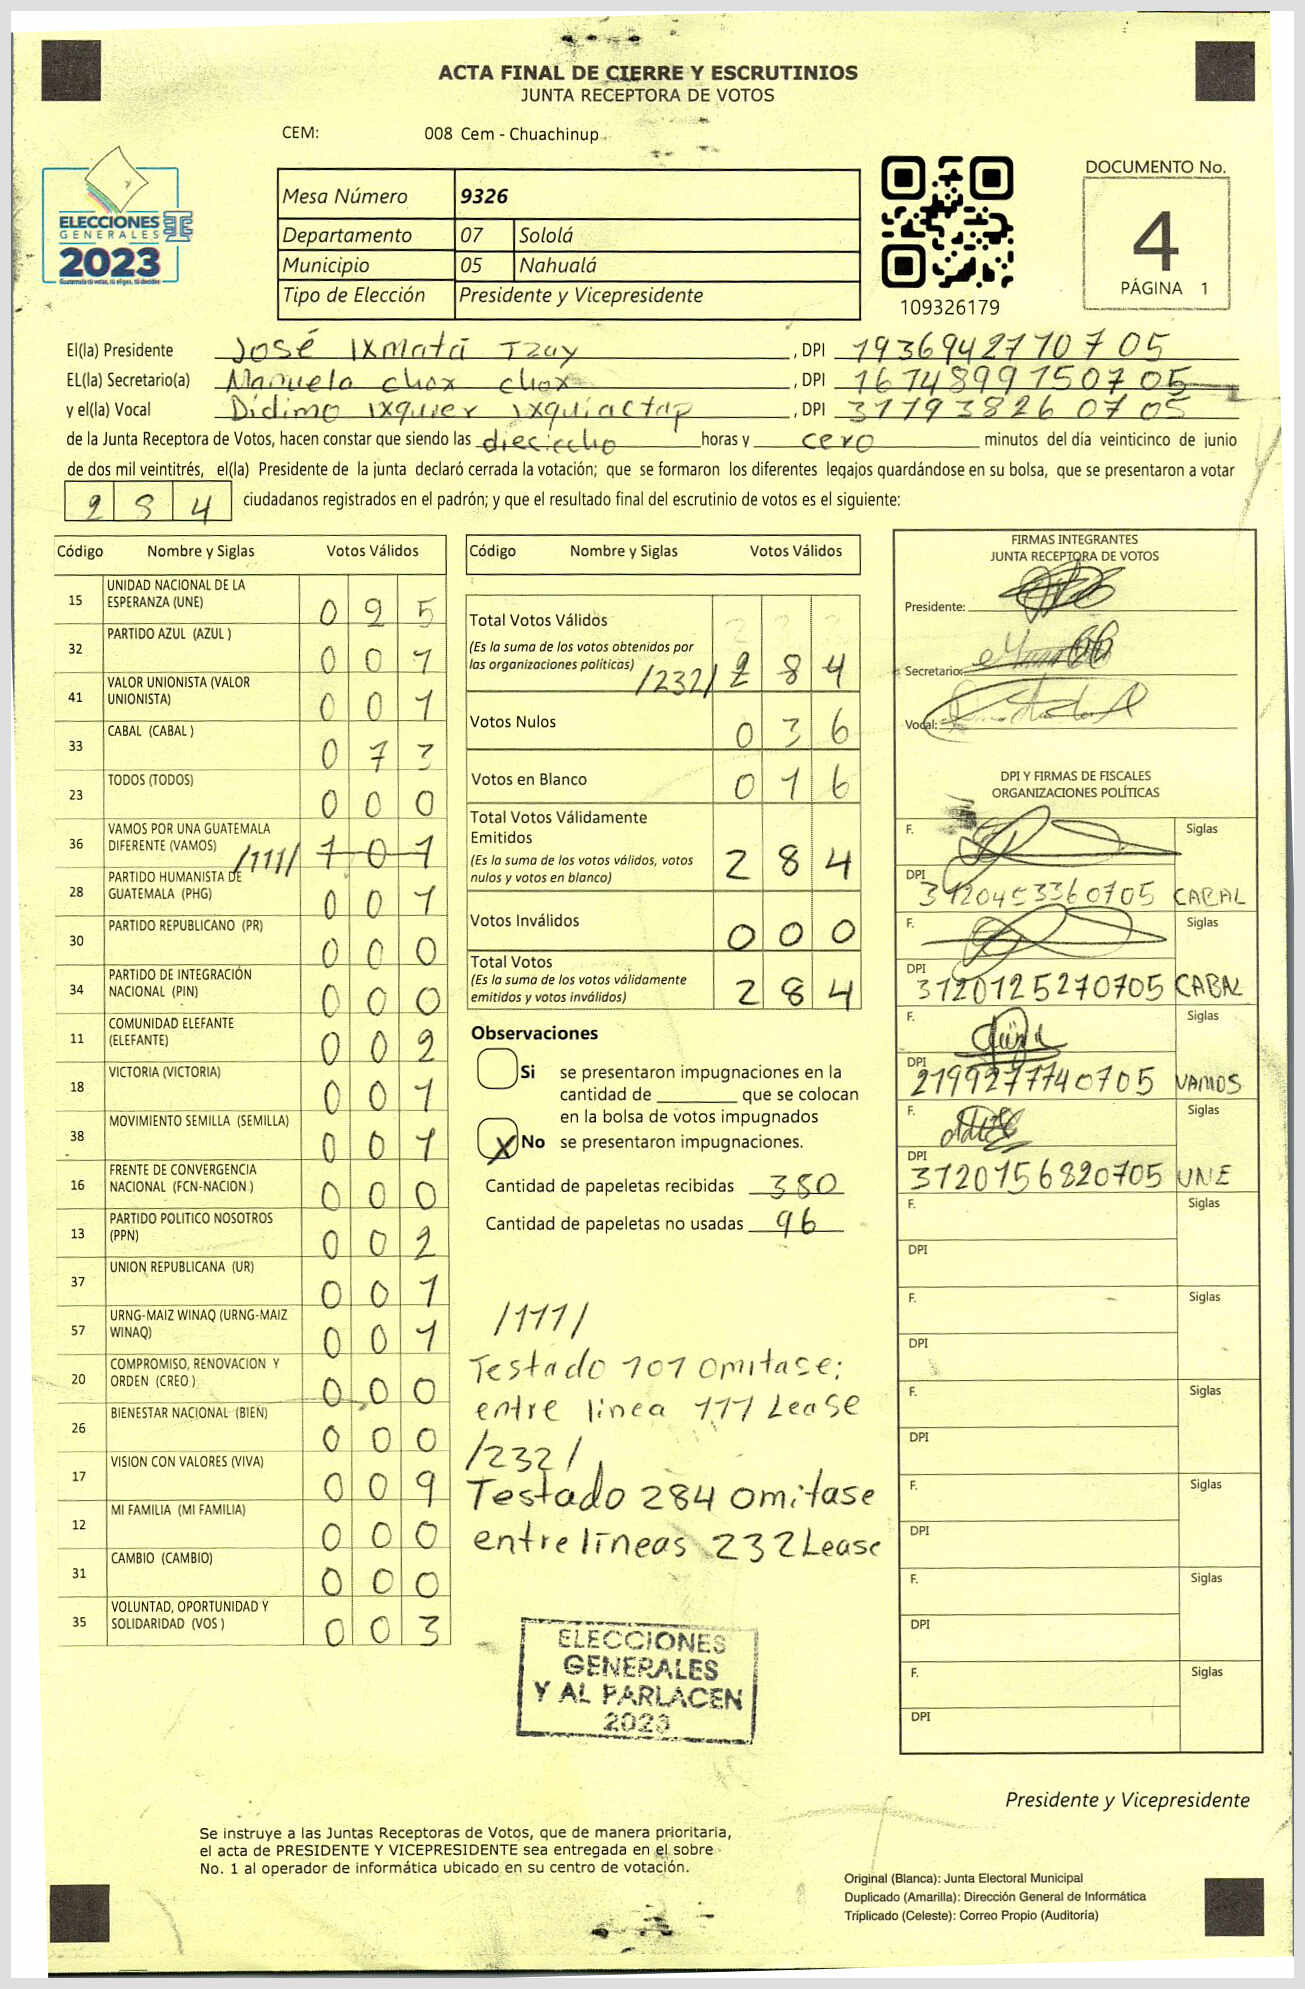 ACTA FINAL DE CIERRE Y ESCRUTINIOS
JUNTA RECEPTORA DE VOTOS
CEM: 008 Cem - Chuachinup
ELECCIONES
GENERALES
2023
Guatemala tú votas, tú eliges, tú decides
Mesa Número 9326
Departamento 07 Sololá
Municipio 05 Nahualá
Tipo de Elección Presidente y Vicepresidente
109326179
DOCUMENTO No.
4
PÁGINA 1
El(la) Presidente José Ixmatá Tzay , DPI 1936942770705
EL(la) Secretario(a) Manuela chox chox , DPI 1674899750705
y el(la) Vocal Dídimo Ixquier Ixquiactap , DPI 317938260705
de la Junta Receptora de Votos, hacen constar que siendo las dieciocho horas y cero minutos del día veinticinco de junio
de dos mil veintitrés, el(la) Presidente de la junta declaró cerrada la votación; que se formaron los diferentes legajos quardándose en su bolsa, que se presentaron a votar
284 ciudadanos registrados en el padrón; y que el resultado final del escrutinio de votos es el siguiente:
Código Nombre y Siglas Votos Válidos
15 UNIDAD NACIONAL DE LA ESPERANZA (UNE) 025
32 PARTIDO AZUL (AZUL ) 001
41 VALOR UNIONISTA (VALOR UNIONISTA) 001
33 CABAL (CABAL ) 073
23 TODOS (TODOS) 000
36 VAMOS POR UNA GUATEMALA DIFERENTE (VAMOS) /111/ 101
28 PARTIDO HUMANISTA DE GUATEMALA (PHG) 001
30 PARTIDO REPUBLICANO (PR) 000
34 PARTIDO DE INTEGRACIÓN NACIONAL (PIN) 000
11 COMUNIDAD ELEFANTE (ELEFANTE) 002
18 VICTORIA (VICTORIA) 001
38 MOVIMIENTO SEMILLA (SEMILLA) 001
16 FRENTE DE CONVERGENCIA NACIONAL (FCN-NACION ) 000
13 PARTIDO POLITICO NOSOTROS (PPN) 002
37 UNION REPUBLICANA (UR) 001
57 URNG-MAIZ WINAQ (URNG-MAIZ WINAQ) 001
20 COMPROMISO, RENOVACION Y ORDEN (CREO ) 000
26 BIENESTAR NACIONAL (BIEN) 000
17 VISION CON VALORES (VIVA) 009
12 MI FAMILIA (MI FAMILIA) 000
31 CAMBIO (CAMBIO) 000
35 VOLUNTAD, OPORTUNIDAD Y SOLIDARIDAD (VOS ) 003
Código Nombre y Siglas Votos Válidos
Total Votos Válidos
(Es la suma de los votos obtenidos por
las organizaciones políticas) /232/ 284
Votos Nulos 036
Votos en Blanco 016
Total Votos Válidamente
Emitidos
(Es la suma de los votos válidos, votos
nulos y votos en blanco) 284
Votos Inválidos 000
Total Votos
(Es la suma de los votos válidamente
emitidos y votos inválidos) 284
Observaciones
Si se presentaron impugnaciones en la
cantidad de ________ que se colocan
en la bolsa de votos impugnados
X No se presentaron impugnaciones.
Cantidad de papeletas recibidas 380
Cantidad de papeletas no usadas 96
/111/
Testado 101 omitase;
entre linea 111 Lease
/232/
Testado 284 omitase
entre líneas 232 Lease
ELECCIONES
GENERALES
Y AL PARLACEN
2023
FIRMAS INTEGRANTES
JUNTA RECEPTORA DE VOTOS
Presidente:
Secretario:
Vocal:
DPI Y FIRMAS DE FISCALES
ORGANIZACIONES POLÍTICAS
F. Siglas
DPI 3120453360705 CABAL
F. Siglas
DPI 3120125270705 CABAL
F. Siglas
DPI 2199277740705 VAMOS
F. Siglas
DPI 3120756820705 UNE
F. Siglas
DPI
F. Siglas
DPI
F. Siglas
DPI
F. Siglas
DPI
F. Siglas
DPI
F. Siglas
DPI
Presidente y Vicepresidente
Se instruye a las Juntas Receptoras de Votos, que de manera prioritaria,
el acta de PRESIDENTE Y VICEPRESIDENTE sea entregada en el sobre
No. 1 al operador de informática ubicado en su centro de votación.
Original (Blanca): Junta Electoral Municipal
Duplicado (Amarilla): Dirección General de Informática
Triplicado (Celeste): Correo Propio (Auditoría)